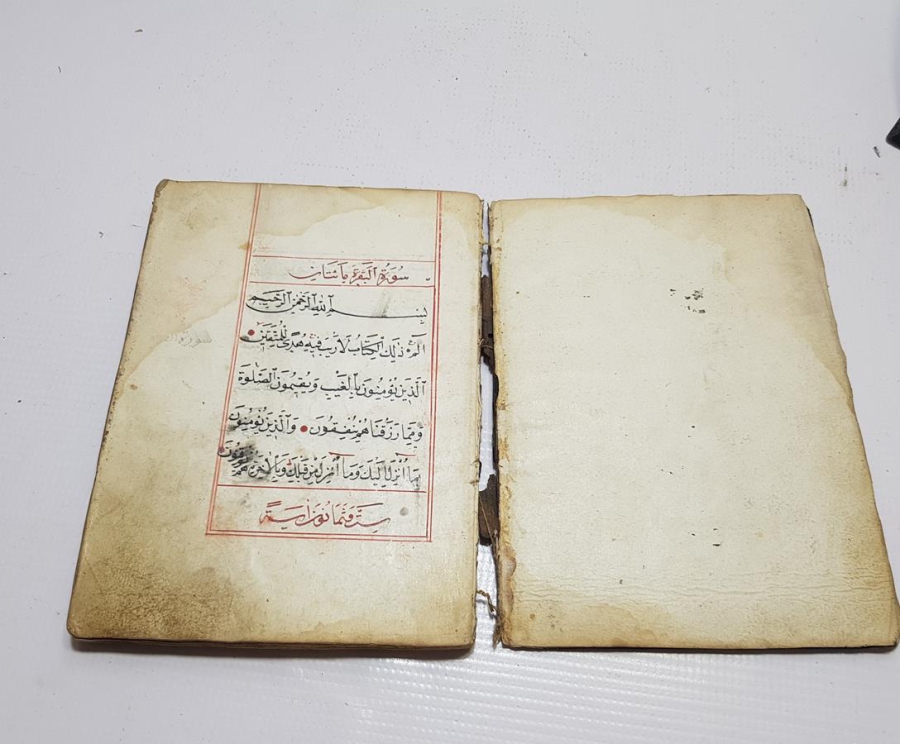 سورة البقرة مائتان
بسم الله الرحمن الرحيم
الم ذلك الكتاب لا ريب فيه هدى للمتقين
الذين يؤمنون بالغيب ويقيمون الصلوة
ومما رزقناهم ينفقون والذين يؤمنون
بما أنزل إليك وما أنزل من قبلك وبالآخرة هم يوقنون
ست وثمانون آية
سورة